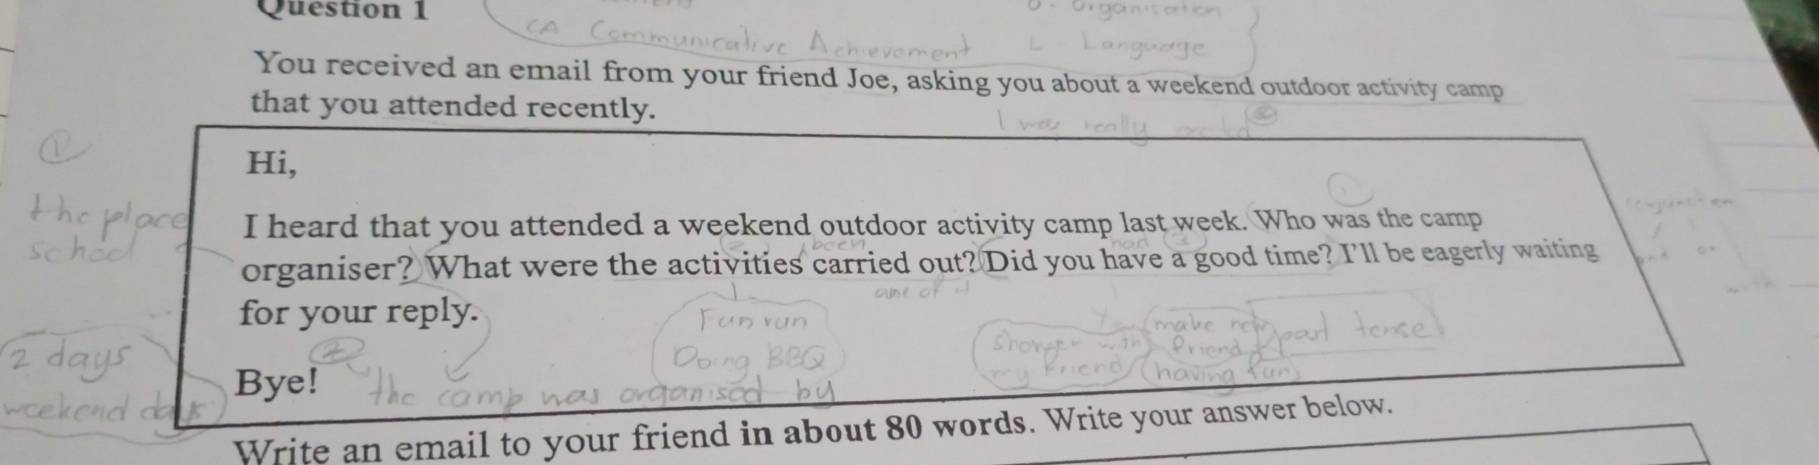 Question 1
O - Organisation
CA Communicative Achievement L - Language
You received an email from your friend Joe, asking you about a weekend outdoor activity camp
that you attended recently.
I was really
Hi,
the place
school
I heard that you attended a weekend outdoor activity camp last week. Who was the camp
been had
organiser? What were the activities carried out? Did you have a good time? I'll be eagerly waiting
for your reply.
Fun run
make new friend past tense
2 days
Doing BBQ
with my friend (having fun)
Bye!
the camp was organised by
weekend days
Write an email to your friend in about 80 words. Write your answer below.